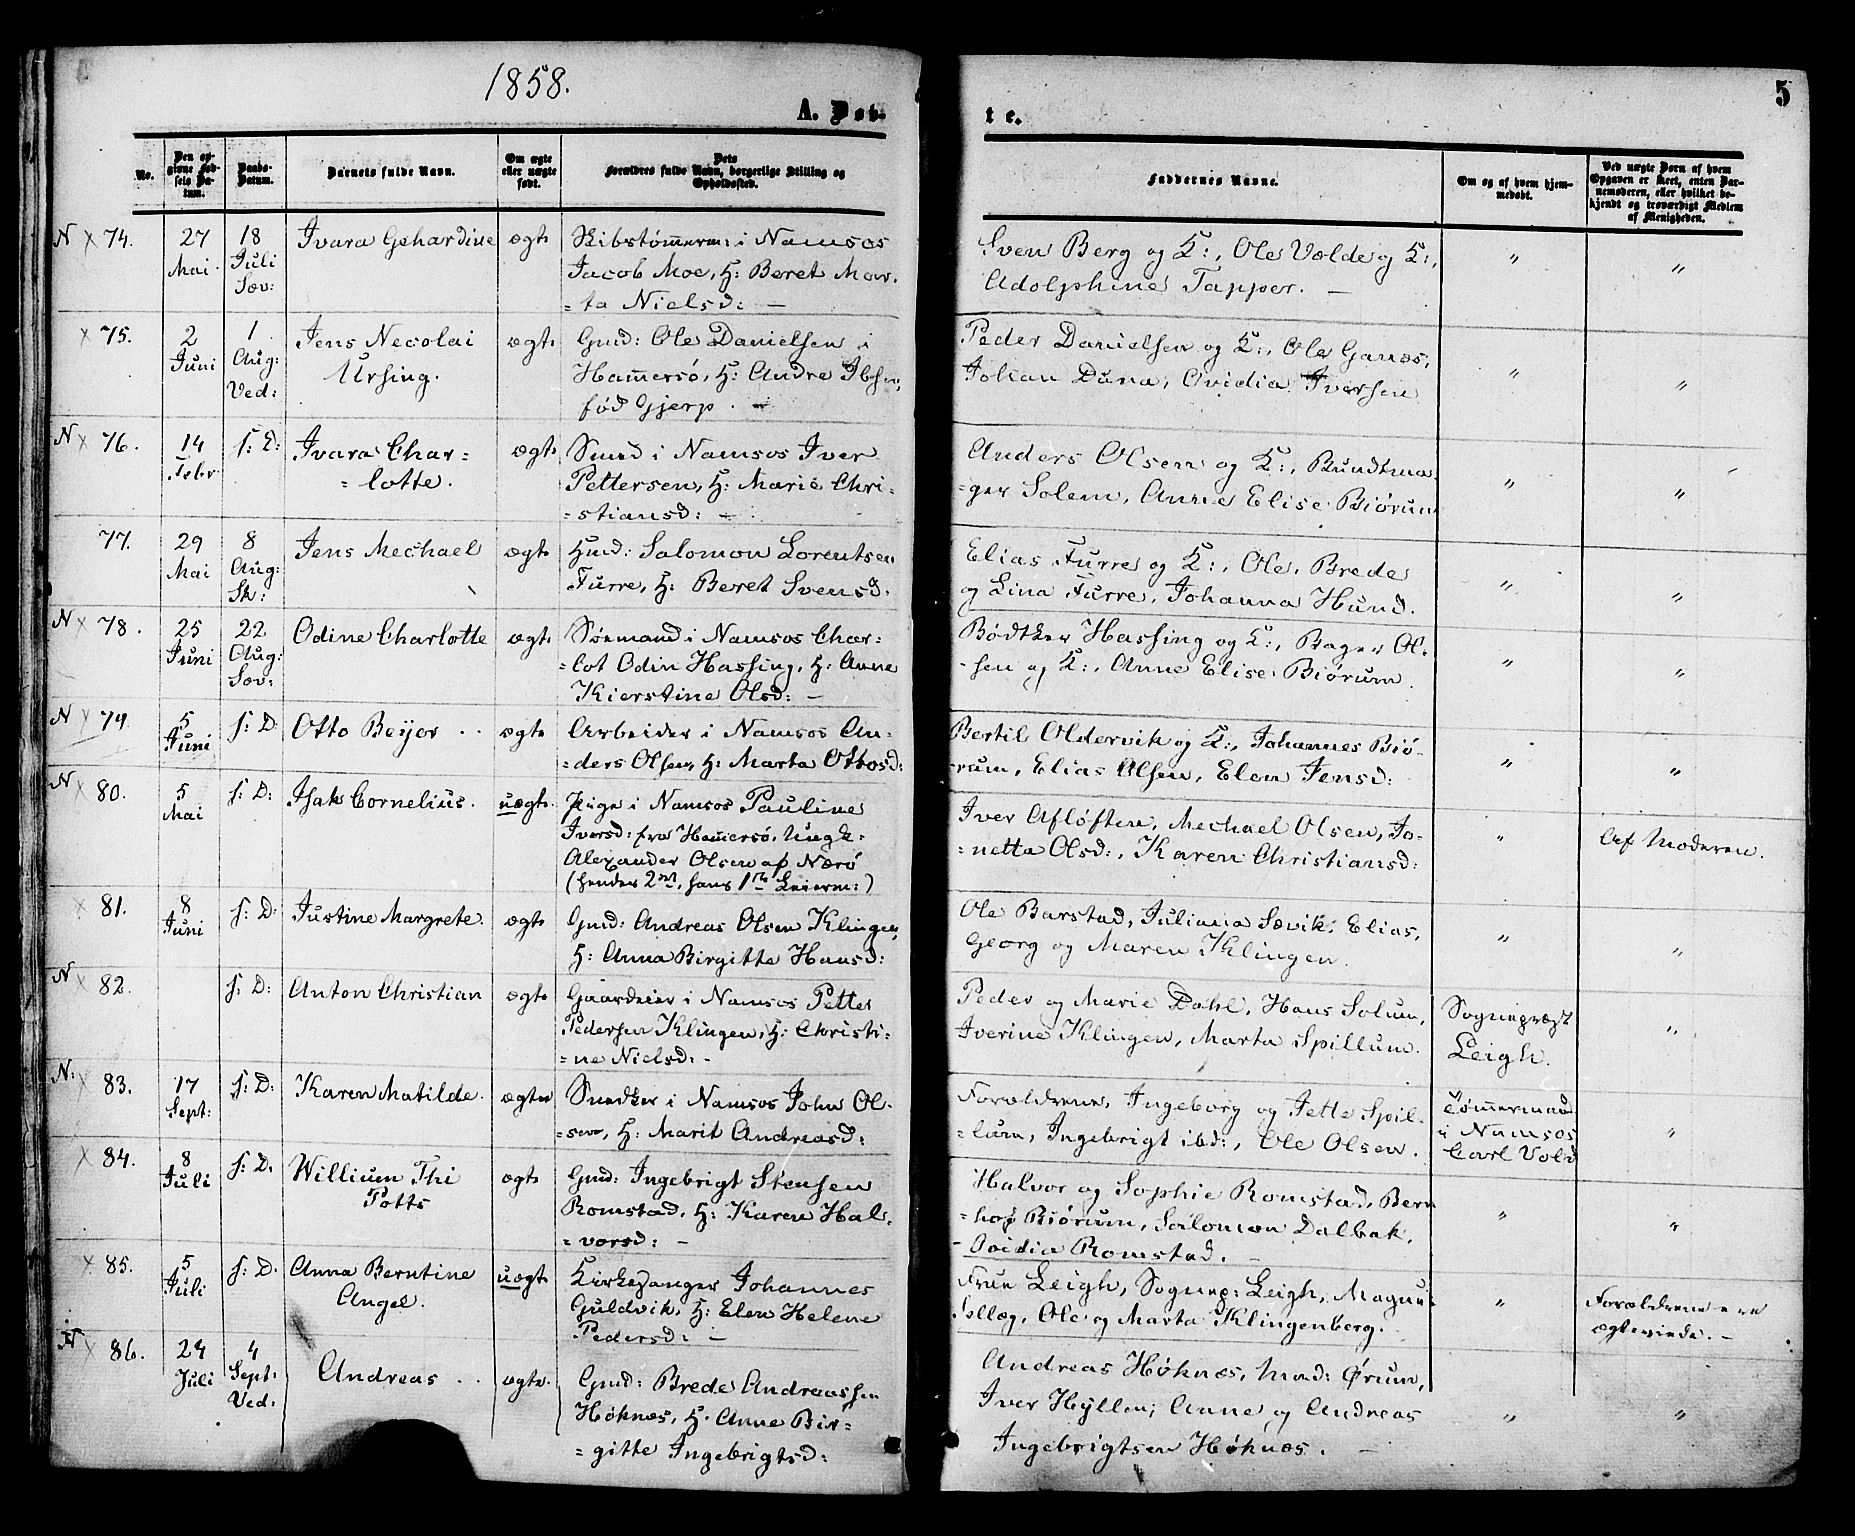 1858.
A. Døb-
te.
5
No.
Den op-
givne Fød-
sels Da-
tum.
Daabs-
Datum.
Barnets fulde Navn.
Om ægte
eller uægte
født.
Dets
Forældres fulde Navn, borgerlige Stilling og
Opholdssted.
Faddernes Navne.
Om og af hvem hjem-
medøbt.
Ved uægte Børn af hvem
Opgaven er skeet, enten Bar-
nemoderen, eller hvilket be-
kjendt og troværdigt Medlem
af Menigheden.
N × 74.
27
Mai.
18
Juli
Sæv:
Ivara Gehardine
ægte
Skibstømmerm: i Namsos
Jacob Moe, H: Beret Mar-
=ta Nielsd: —
Sven Berg og K:, Ole Volde og K:,
Adolphine Tapper. —
"
"
× 75.
2
Juni
1
Aug:
Ved:
Jens Necolai
Ursing.
ægte
Gmd: Ole Danielsen i
Hammersø, H: Andre Ibsen,
fød Gjerp. —
Peder Danielsen og K:, Ole Ganæs,
Johan Duna, Ovidia Iversen
"
"
N × 76.
14
Febr
s: D:
Ivara Char=
=lotte.
ægte
Smed i Namsos Iver
Pettersen, H: Marie Chri-
=stiansd: —
Anders Olsen og K:, Bundtma
=ger Solem, Anne Elise Biørum
"
"
77.
29
Mai
8
Aug:
Sk:
Jens Mechael
ægte
Hmd: Salomon Lorentsen
Furre, H: Beret Svensd.
Elias Furre og K:, Ole, Brede
og Lina Furre, Johanna Hund.
"
"
N × 78.
25
Juni
22
Aug:
Sæv:
Odine Charlotte
ægte
Sømand i Namsos Char=
=lot Odin Hassing, H: Anne
Kierstine Olsd: —
Bødtker Hassing og K:, Bager Ol-
-sen og K:, Anne Elise Biørum.
"
"
N × 79
5
Juni
s: D:
Otto Beyer . .
ægte
Arbeider i Namsos An-
=ders Olsen, H: Marta Ottosd:
Bertil Oldervik og K:, Johannes Biø-
-rum, Elias Olsen, Elen Jensd:
"
"
N × 80.
5
Mai
s: D:
Isak Cornelius.
uægte.
Pige i Namsos Pauline
Iversd: fra Hammersø, Ungk=
Alexander Olsen af Nærø
(hendes 2det, hans 1ste Leierm:)
Iver Afløften, Mechael Olsen, Jo-
=netta Olsd:, Karen Christiansd:
"
Af Moderen.
× 81.
8
Juni
s: D:
Justine Margrete.
ægte
Gmd: Andreas Olsen Klingen,
H: Anna Birgitte Hansd:
Ole Barstad, Juliana Sævik, Elias,
Georg og Maren Klingen.
"
"
N × 82.
s: D:
Anton Christian
ægte
Gaardeier i Namsos Petter
Pedersen Klingen, H: Christi-
=ne Nielsd: -
Peder og Marie Dahl, Hans Solum,
Iverine Klingen, Marta Spillum.
Sognepræst
Leigh.
"
N: × 83.
17
Sept:
s: D:
Karen Matilde.
ægte
Snedker i Namsos John Ol-
=sen, H: Marit Andreasd:
Forældrene, Ingeborg og Jette Spil-
=lum, Ingebrigt ibd:, Ole Olsen.
Tømmermand
i Namsos
Carl Vold
"
× 84.
8
Juli
s: D:
Willium Thi
Potts
ægte
Gmd: Ingebrigt Stensen
Romstad, H: Karen Hal-
=vorsd: —
Halvor og Sophie Romstad, Bern
=hof Biørum, Salomon Dalbak,
- Ovidia Romstad. —
"
"
× 85.
5
Juli
s: D.
Anna Berntine
Angel.
uægte
Kirkesanger Johannes
Guldvik, H: Elen Helene
Pedersd: —
Frue Leigh, Sognep: Leigh, Magnus
Sellæg, Ole og Marta Klingenberg.
"
Forældrene ere
ægteviede. —
N × 86.
24
Juli
4
Sept:
Ved:
Andreas . .
ægte.
Gmd: Brede Andreassen
Høknæs, H. Anne Bir=
=gitte Ingebrigtsd:
Andreas Høknæs, Hmd: Ørum,
Iver Hyllen, Anne og Andreas
Ingebrigtsen Høknæs. —
"
"